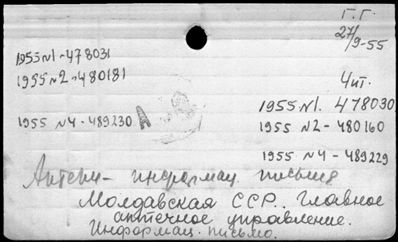 Г.Г.
27/9-55
1955 N1-478031
1955 N2-480181
Чит.
1955 N1. 478030
1955 N4-489230 А
1955 N2-480160
1955 N4-489229
информац. письма
Молдавская ССР. Главное
аптечное управление.
Информац. письмо.